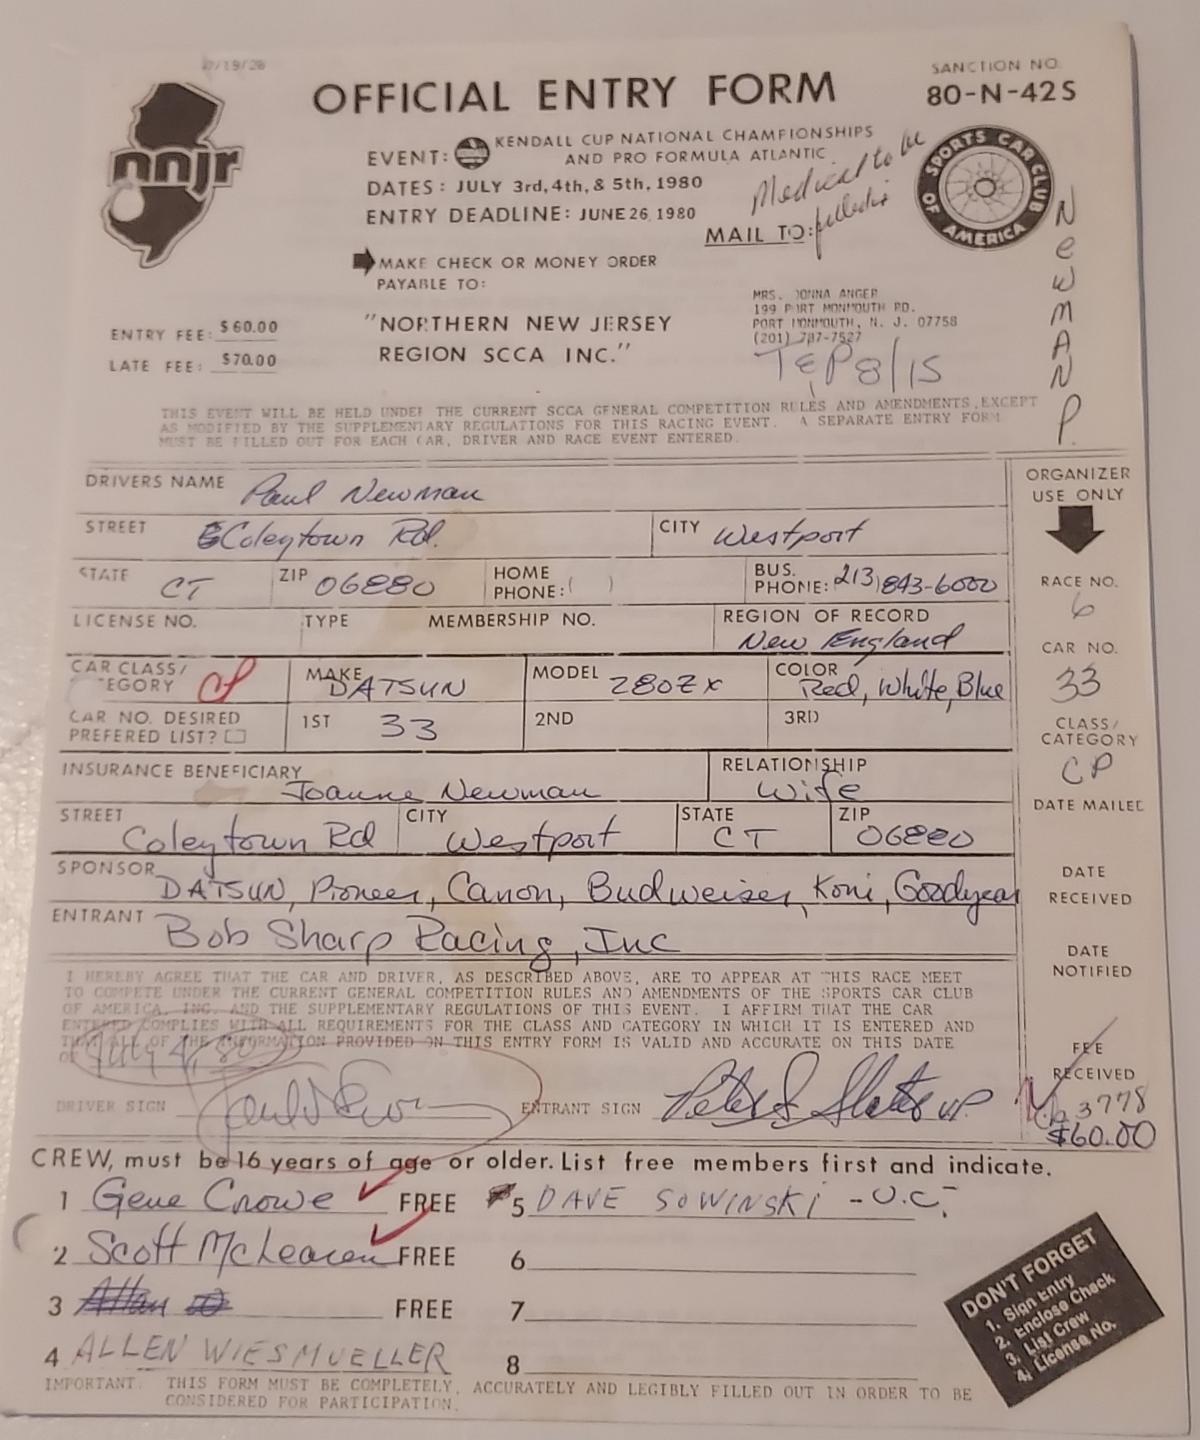 OFFICIAL ENTRY FORM
SANCTION NO.
80-N-42S
nnjr
EVENT: KENDALL CUP NATIONAL CHAMPIONSHIPS
AND PRO FORMULA ATLANTIC
DATES: JULY 3rd, 4th, & 5th, 1980
ENTRY DEADLINE: JUNE 26, 1980
Medical to be
MAIL TO:
SPORTS CAR CLUB OF AMERICA
NewmAN P.
MAKE CHECK OR MONEY ORDER
PAYABLE TO:
"NORTHERN NEW JERSEY
REGION SCCA INC."
ENTRY FEE: $60.00
LATE FEE: $70.00
MRS. DONNA ANGER
199 PORT MONMOUTH RD.
PORT MONMOUTH, N. J. 07758
(201) 787-7527
8/15
THIS EVENT WILL BE HELD UNDER THE CURRENT SCCA GENERAL COMPETITION RULES AND AMENDMENTS, EXCEPT
AS MODIFIED BY THE SUPPLEMENTARY REGULATIONS FOR THIS RACING EVENT. A SEPARATE ENTRY FORM
MUST BE FILLED OUT FOR EACH CAR, DRIVER AND RACE EVENT ENTERED.
DRIVERS NAME Paul Newman
STREET Coleytown Rd. CITY Westport
STATE CT ZIP 06880 HOME PHONE: ( ) BUS. PHONE: 213) 843-6000
LICENSE NO. TYPE MEMBERSHIP NO. REGION OF RECORD New England
CAR CLASS/ CATEGORY CP MAKE DATSUN MODEL 280ZX COLOR Red, White, Blue
CAR NO. DESIRED PREFERED LIST? 1ST 33 2ND 3RD
INSURANCE BENEFICIARY Joanne Newman RELATIONSHIP Wife
STREET Coleytown Rd CITY Westport STATE CT ZIP 06880
SPONSOR DATSUN, Pioneer, Canon, Budweiser, Koni, Goodyear
ENTRANT Bob Sharp Racing, Inc
ORGANIZER
USE ONLY
RACE NO.
6
CAR NO.
33
CLASS/
CATEGORY
CP
DATE MAILED
DATE
RECEIVED
DATE
NOTIFIED
FEE
RECEIVED
3778
$60.00
I HEREBY AGREE THAT THE CAR AND DRIVER, AS DESCRIBED ABOVE, ARE TO APPEAR AT THIS RACE MEET
TO COMPETE UNDER THE CURRENT GENERAL COMPETITION RULES AND AMENDMENTS OF THE SPORTS CAR CLUB
OF AMERICA, INC. AND THE SUPPLEMENTARY REGULATIONS OF THIS EVENT. I AFFIRM THAT THE CAR
ENTERED COMPLIES WITH ALL REQUIREMENTS FOR THE CLASS AND CATEGORY IN WHICH IT IS ENTERED AND
THAT ALL OF THE INFORMATION PROVIDED ON THIS ENTRY FORM IS VALID AND ACCURATE ON THIS DATE
OF July 4, 80
DRIVER SIGN ENTRANT SIGN
CREW, must be 16 years of age or older. List free members first and indicate.
1 Gene Crowe FREE 5 DAVE SOWINSKI - U.C.
2 Scott McLearen FREE 6
3 FREE 7
4 ALLEN WIESMUELLER 8
DON'T FORGET
1. Sign Entry
2. Enclose Check
3. List Crew
4. License No.
IMPORTANT: THIS FORM MUST BE COMPLETELY, ACCURATELY AND LEGIBLY FILLED OUT IN ORDER TO BE
CONSIDERED FOR PARTICIPATION.